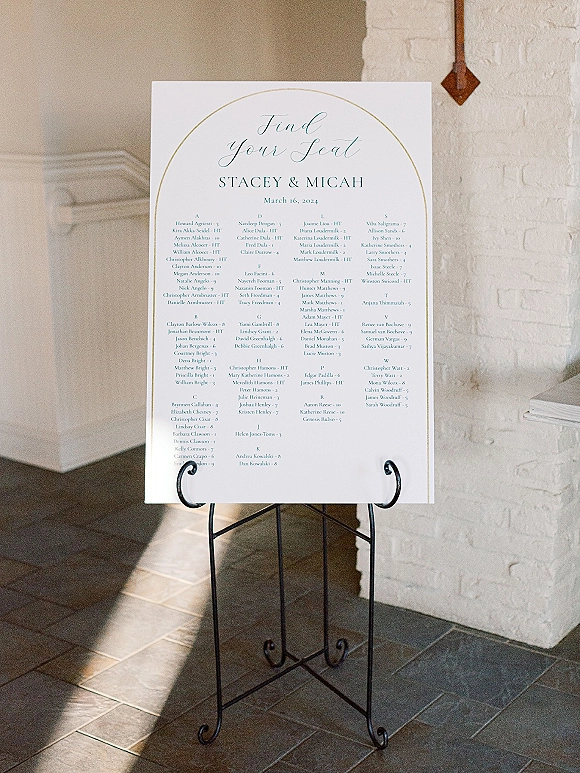 Find
Your Seat
STACEY & MICAH
March 16, 2024
A
Howard Agnesti - 3
Kira Akka-Seidel - HT
Aymen Alakhras - 10
Melissa Alcocer - HT
William Alcocer - HT
Christopher Alkhoury - HT
Clayton Anderson - 10
Megan Anderson - 10
Natalie Angelo - 9
Nick Angelo - 9
Christopher Armbruster - HT
Danielle Armbruster - HT
B
Clayton Barlow-Wilcox - 8
Jonathan Beaumont - HT
Jason Bendisch - 4
Johan Bergenas - 6
Courtney Bright - 3
Dena Bright - 1
Matthew Bright - 3
Priscilla Bright - 1
William Bright - 3
C
Brennen Callahan - 4
Elizabeth Chesney - 7
Christopher Cizar - 8
Lindsay Cizar - 8
Barbara Clawson - 1
Dennis Clawson - 1
Kelly Connors - 7
Carmen Crapo - 6
D
Nardeep Deogan - 5
Alice Dula - HT
Catherine Dula - HT
Fred Dula - 1
Claire Durrow - 4
F
Leo Fuemi - 6
Nayereh Fooman - 5
Nazanin Fooman - HT
Seth Freedman - 4
Tracy Freedman - 4
G
Yumi Gambrill - 8
Lindsey Grant - 2
David Greenhalgh - 6
Debbie Greenhalgh - 6
H
Christopher Hamons - HT
Mary Katherine Hamons - 2
Meredith Hamons - HT
Peter Hamons - 2
Julie Heineman - 3
Joshua Henley - 7
Kristen Henley - 7
J
Helen Jones-Toms - 3
K
Andrea Kowalski - 8
Dan Kowalski - 8
L
Joanne Liou - HT
Diana Loudermilk - 2
Katerina Loudermilk - HT
Maria Loudermilk - 2
Mark Loudermilk - 2
Matthew Loudermilk - HT
M
Christopher Manning - HT
Hunter Matthews - 9
James Matthews - 9
Mark Matthews - 1
Marsha Matthews - 1
Adam Mayer - HT
Lea Mayer - HT
Elena McGovern - 6
Daniel Monahan - 5
Brad Murton - 3
Lucie Morton - 3
P
Edgar Padilla - 6
James Phillips - HT
R
Aaron Reese - 10
Katherine Reese - 10
Genesis Rulon - 5
S
Viba Saligrama - 7
Allison Sands - 6
Ivy Shen - 10
Katherine Smothers - 4
Larry Smothers - 4
Sara Smothers - 4
Isaac Steele - 7
Michelle Steele - 7
Winston Swinord - HT
T
Anjana Thimmaiah - 5
V
Renee van Bechove - 9
Samuel van Bechove - 9
German Vargas - 9
Sathya Vijayakumar - 7
W
Christopher Watt - 2
Terry Watt - 2
Mona Wilcox - 8
Calvin Woodruff - 5
James Woodruff - 5
Sarah Woodruff - 5